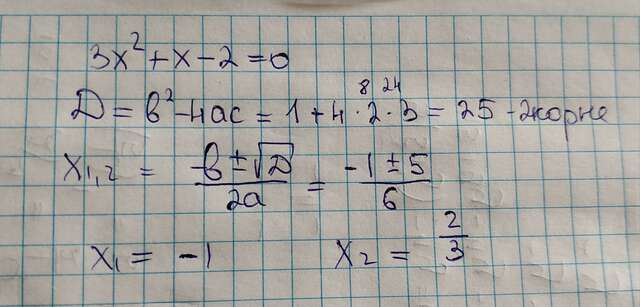 3x² + x - 2 = 0
D = b² - 4ac = 1 + 4 · 2 · 3 = 25 - 2 корне
8 24
x₁,₂ = -b ± √D / 2a = -1 ± 5 / 6
x₁ = -1 x₂ = 2/3